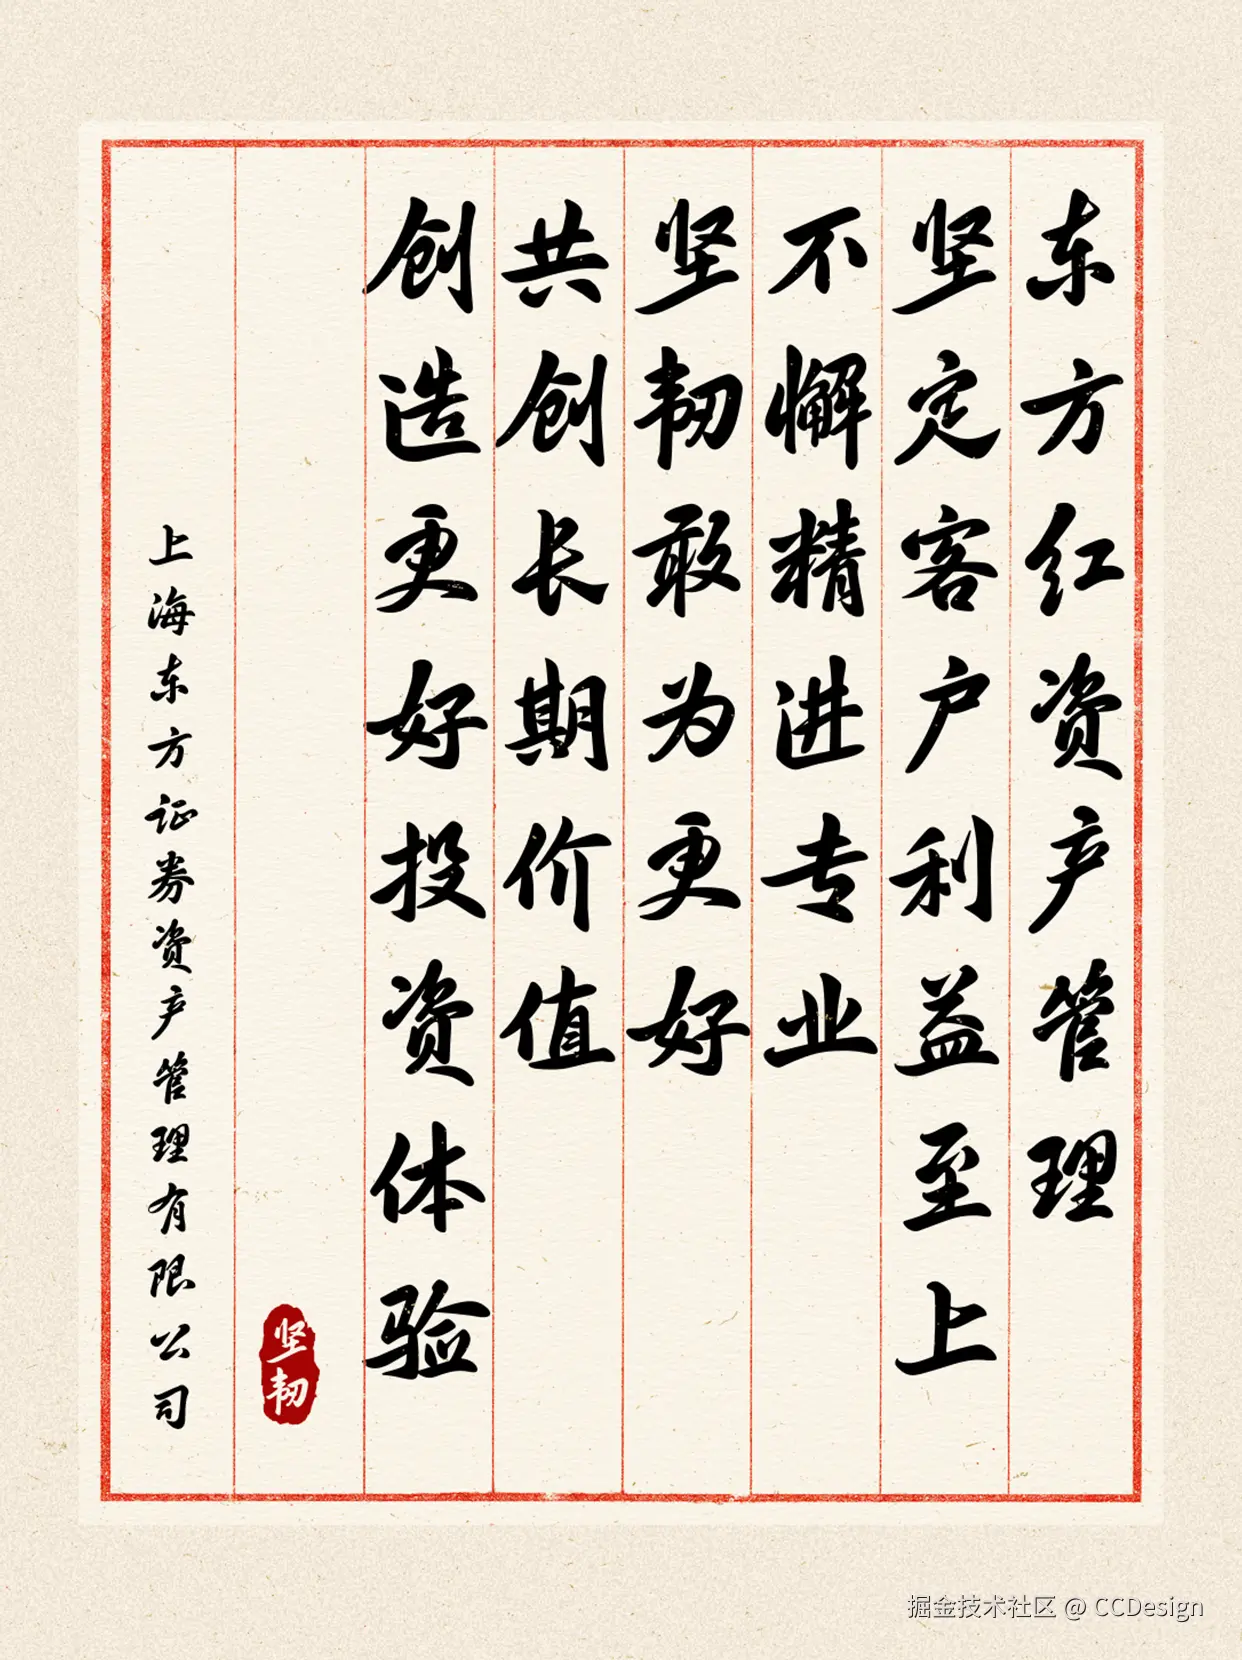 东方红资产管理
坚定客户利益至上
不懈精进专业
坚韧敢为更好
共创长期价值
创造更好投资体验
坚韧
上海东方证券资产管理有限公司
掘金技术社区 @ CCDesign